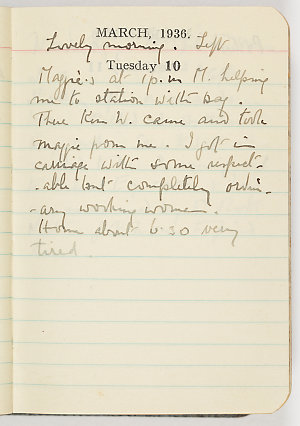 MARCH, 1936.
Lovely morning. Left
Tuesday 10
Maggie's at 1 p.m M. helping
me to station with bag.
There Ken W. came and took
Maggie from me. I got in
carriage with some respect-
-able but completely ordin-
-ary working women.
Home about 6.30 very
tired.